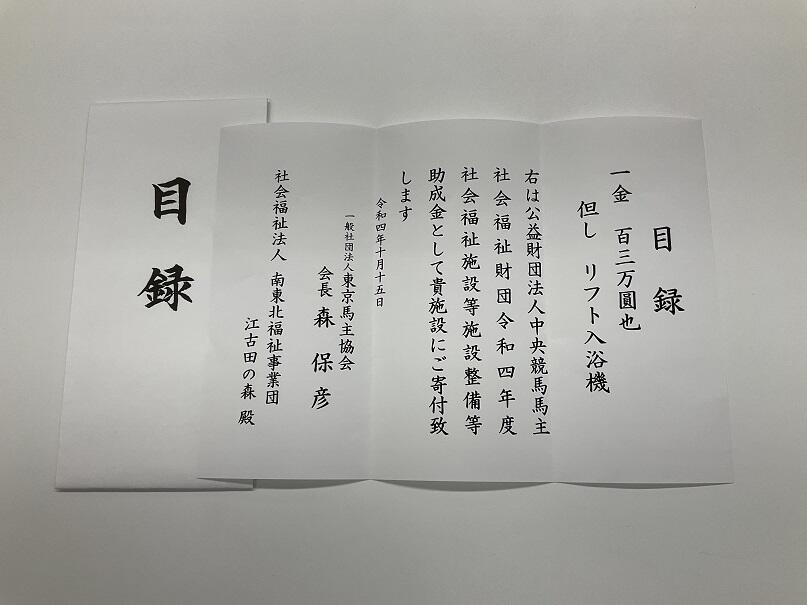 目録
一金　百三万圓也
但し　リフト入浴機
右は公益財団法人中央競馬馬主
社会福祉財団令和四年度
社会福祉施設等施設整備等
助成金として貴施設にご寄付致
します
令和四年十月十五日
一般社団法人東京馬主協会
会長　森　保彦
社会福祉法人　南東北福祉事業団
江古田の森　殿
目録